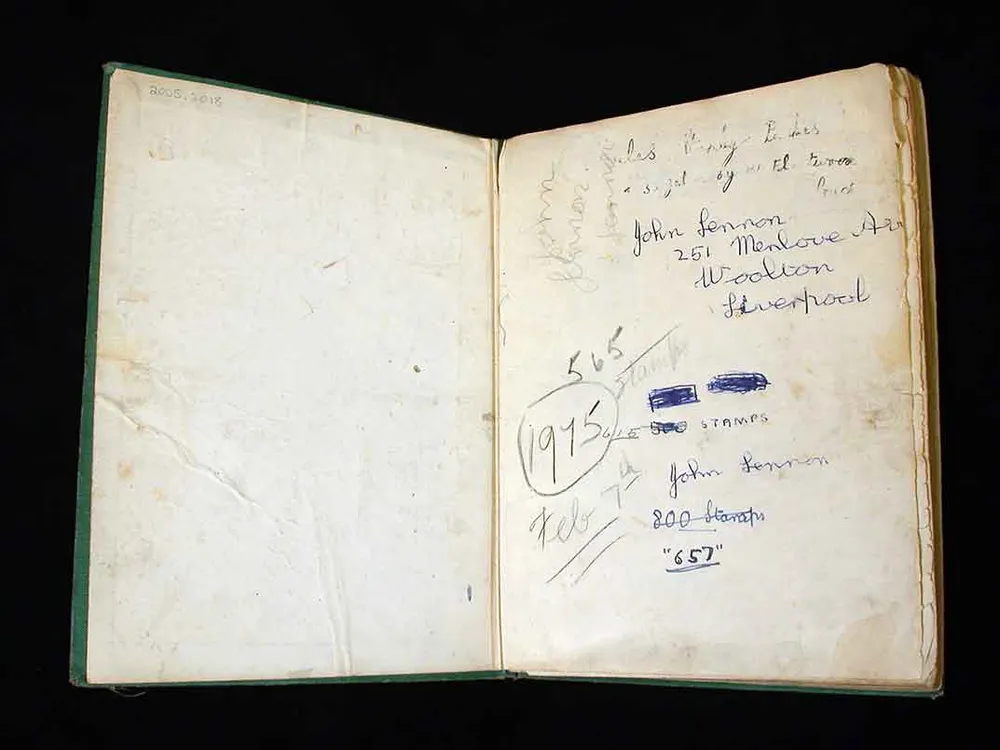 2005.2018
John
Lennon
Lennon
John Lennon
251 Menlove Av
Woolton
Liverpool
565
Stamps
1975
615 500 STAMPS
Feb 7th
John Lennon
800 Stamps
"657"